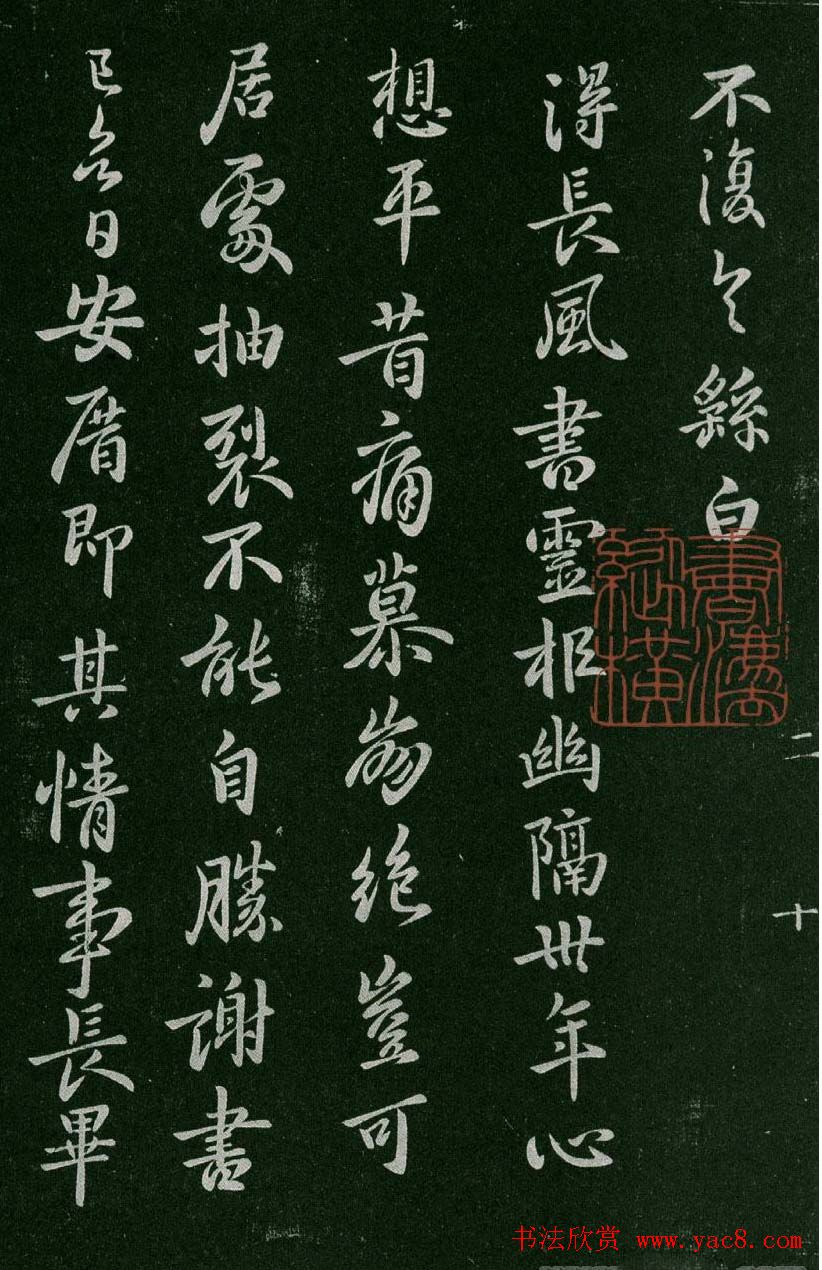 不復乂乂繇白
得長風書靈柩幽隔卅年心
想平昔痛慕崩絶豈可
居處抽裂不能自勝謝書
已欲日安厝即其情事長畢
二十
書法欣赏 www.yac8.com